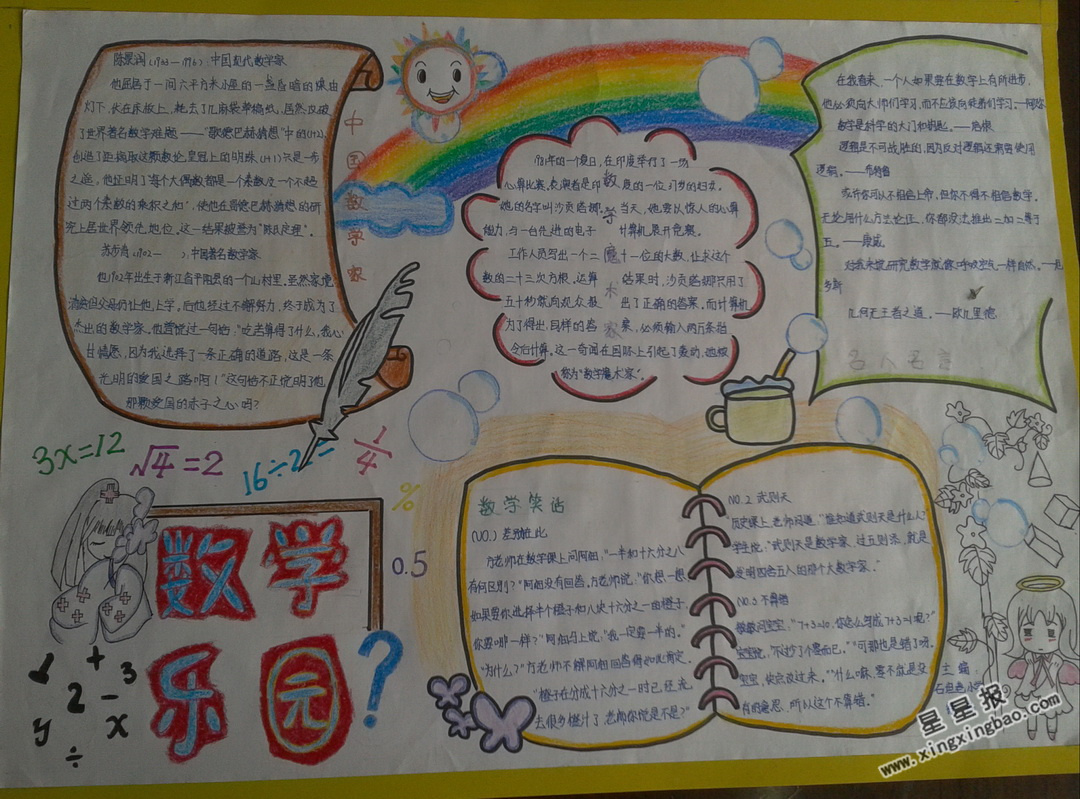 陈景润(1933—1996):中国现代数学家
他屈居于一间六平方米小屋的一盏昏暗的煤油
灯下,伏在床板上,耗去了几麻袋草稿纸,居然攻破
了世界著名数学难题——"歌德巴赫猜想"中的(1+2),
创造了距摘取这颗数论皇冠上的明珠(1+1)只是一步
之遥,他证明了"每个大偶数都是一个素数及一个不超
过两个素数的乘积之和",使他在哥德巴赫猜想的研
究上居世界领先地位,这一结果被誉为"陈氏定理"。
苏步青(1902— ),中国著名数学家
他1902年出生于浙江省平阳县的一个山村里,虽然家境
清贫但父母仍让他上学,后他经过不懈努力,终于成为了
杰出的数学家。他曾说过一句话:"吃苦算得了什么,我心
甘情愿,因为我选择了一条正确的道路,这是一条
光明的爱国之路啊!"这句话不正说明了他
那颗爱国的赤子之心吗?
中国数学家
1981年的一个夏日,在印度举行了一场
心算比赛,表演者是印度的一位37岁的妇女,
她的名字叫沙贡塔娜,当天,她要以惊人的心算
能力,与一台先进的电子计算机展开竞赛。
工作人员写出一个二百十一位的大数,让求这个
数的二十三次方根,运算结果时,沙贡塔娜只用了
五十秒就向观众报出了正确的答案。而计算机
为了得出同样的答案,必须输入两万条指
令后计算,这一奇闻在国际上引起了轰动,她被
称为"数学魔术家"。
数学魔术家
在我看来,一个人如果要在数学上有所进步,
他必须向大师们学习,而不应该向徒弟们学习。—阿贝尔
数学是科学的大门和钥匙。——培根
逻辑是不可战胜的,因为反对逻辑还需要使用
逻辑。
或许你可以不相信上帝,但你不得不相信数学。
无论用什么方法论证,你都没法推出二加二等于
五。
对我来说,研究数学就像呼吸空气一样自然。
几何无王者之道。——欧几里德
名人名言
3x=12
√4=2
16÷2=
1/4
%
0.5
数学
乐园
?
+
2
-
3
x
y
÷
数学笑话
NO.1 差别在此
方老师在数学课上问阿细:"一半和十六分之八
有何区别?"阿细没有回答,方老师说:"你想一想
如果要你选择半个橙子和八块十六分之一的橙子,
你要哪一样?"阿细马上说:"我一定要一半的。"
"为什么?"方老师不解阿细回答得如此肯定。
"橙子在分成十六分之一时已经流
去很多橙汁了,老师你说是不是?"
NO.2 武则天
历史课上,老师问道:"谁知道武则天是什么人?"
学生说:"武则天是数学家,过五则添,就是
发明四舍五入的那个大数学家。"
NO.3 不算错
爸爸问宝宝:"7+3=10,你怎么写成7+3=1呢?"
宝宝说:"不过少了个零而已。""可那也是错了呀,
宝宝,快点改过来。""什么嘛,零不就是没
有的意思,所以这个不算错。"
主编:
星星报
www.xingxingbao.com